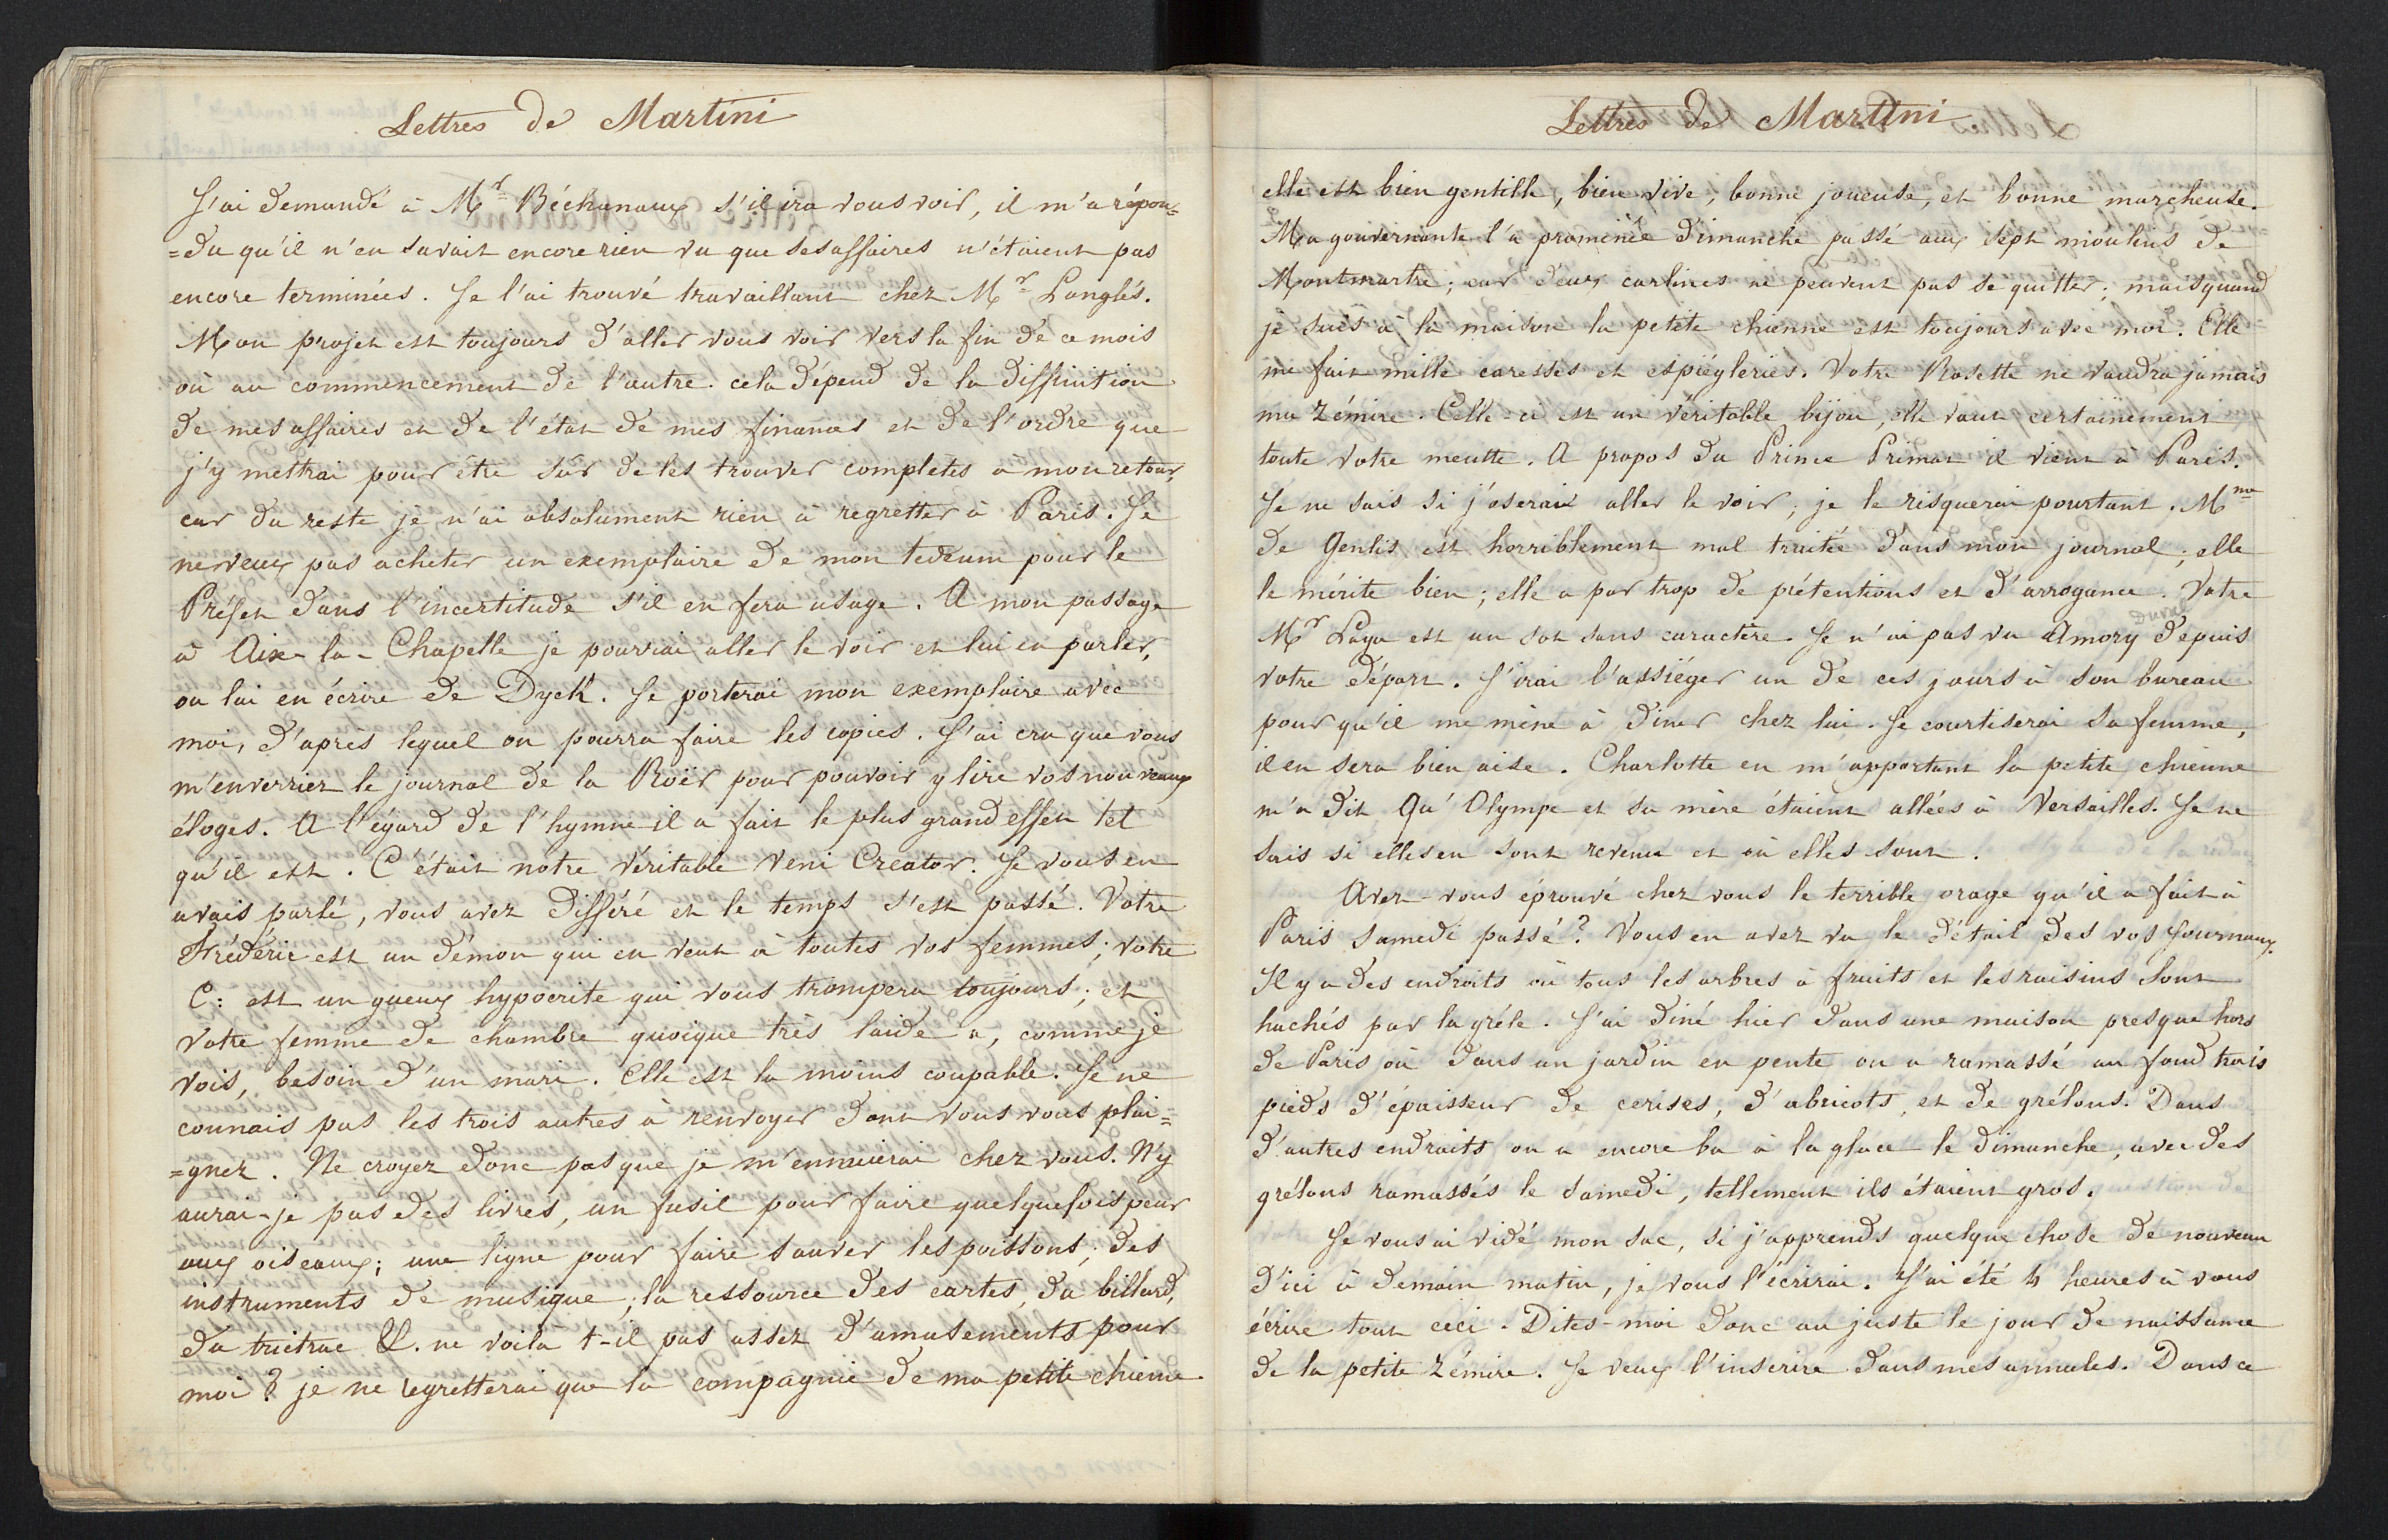 Lettres de Martini
J'ai demandé à Mr Béchanaux s'il ira vous voir, il m'a répon=
=du qu'il n'en savait encore rien vu que ses affaires n'étaient pas
encore terminées. Je l'ai trouvé travaillant chez Mr Langlès.
Mon projet est toujours d'aller vous voir vers la fin de ce mois
où au commencement de l'autre. cela dépend de la
de mes affaires et de l'état de mes finances et de l'ordre que
j'y mettrai pour être sûr de les trouver completes à mon retour,
car du reste je n'ai absolument rien à regretter à Paris. Je
ne veux pas acheter un exemplaire de mon tedeum pour le
Préfet dans l'incertitude s'il en fera usage. A mon passage
à Aix-la-Chapelle je pourrai aller le voir et lui en parler,
ou lui en écrire de Dyck. Je porterai mon exemplaire avec
moi, d'après lequel on pourra faire les copies. J'ai cru que vous
m'enverriez le journal de la Roër pour pouvoir y lire vos nouveaux
éloges. A l'égard de l'hymne il a fait le plus grand effet tel
qu'il est. C'était notre véritable Veni Creator. Je vous en
avais parlé, vous avez différé et le temps s'est passé. Votre
Fréderic est un démon qui en veut à toutes vos femmes; votre
C: est un gueux hypocrite qui vous trompera toujours; et
votre femme de chambre quoique très laide a, comme je
vois, besoin d'un mari. elle est la moins coupable. Je ne
connais pas les trois autres à renvoyer dont vous vous plai=
=gnez. Ne croyez donc pas que je m'ennuierai chez vous. N'y
aurai-je pas des livres, un fusil pour faire quelquefois peur
aux oiseaux; une ligne pour faire sauver les poissons; des
instruments de musique; la ressource des cartes, du billard,
du trictrac &. ne voila t-il pas assez d'amusements pour
moi? je ne regretterai que la compagnie de ma petite chienne
Lettres de Martini
elle est bien gentille, bien vive, bonne joueuse, et bonne marcheuse.
Ma gouvernante l'a prominée dimanche passé aux sept moulins de
Montmartre; car deux carlines ne peuvent pas se quitter; mais quand
je suis à la maison la petite chienne est toujours avec moi. Elle
me fait mille caresses et espiégleries. Votre Rosette ne vaudra jamais
ma Zémire. Celle-ci est un véritable bijou, elle vaut certainement
toute votre meutte. A propos du Prince Primat il vient à Paris.
Je ne sais si j'oserais aller le voir, je le risquerai pourtant. Mme
de Genlis est horriblement mal traitée dans mon journal; elle
le mérite bien; elle a par trop de prétentions et d'arrogance. Votre
Mr Laya est un sot sans caractère. Je n'ai pas vu Amory Duval depuis
votre départ. J'irai l'assiéger un de ces jours à son bureau
pour qu'il me mène à diner chez lui. Je courtiserai sa femme,
il en sera bien aise. Charlotte en m'apportant la petite chienne
m'a dit qu'Olympe et sa mère étaient allées à Versailles. Je ne
sais si elles en sont revenu et où elles sont.
Avez-vous éprouvé chez vous le terrible orage qu'il a fait à
Paris samedi passé? Vous en avez vu le détail des vos journaux.
Il y a des endroits où tous les arbres à fruits et les raisins sont
hachés par la grêle. J'ai diné hier dans une maison presque hors
de Paris où dans un jardin en pente on a ramassé au fond trois
pieds d'épaisseur de cerises, d'abricots, et de grélons. Dans
d'autres endroits on a encore bu à la glace le dimanche, avec des
grélons ramassés le samedi, tellement ils étaient gros.
Je vous ai vidé mon sac, si j'apprends quelque chose de nouveau
d'ici à demain matin, je vous l'écrirai. J'ai été 4 heures à vous
écrire tout ceci. Dites-moi donc au juste le jour de naissance
de la petite Zémire. Je veux l'inscrire dans mes annales. Dans ce